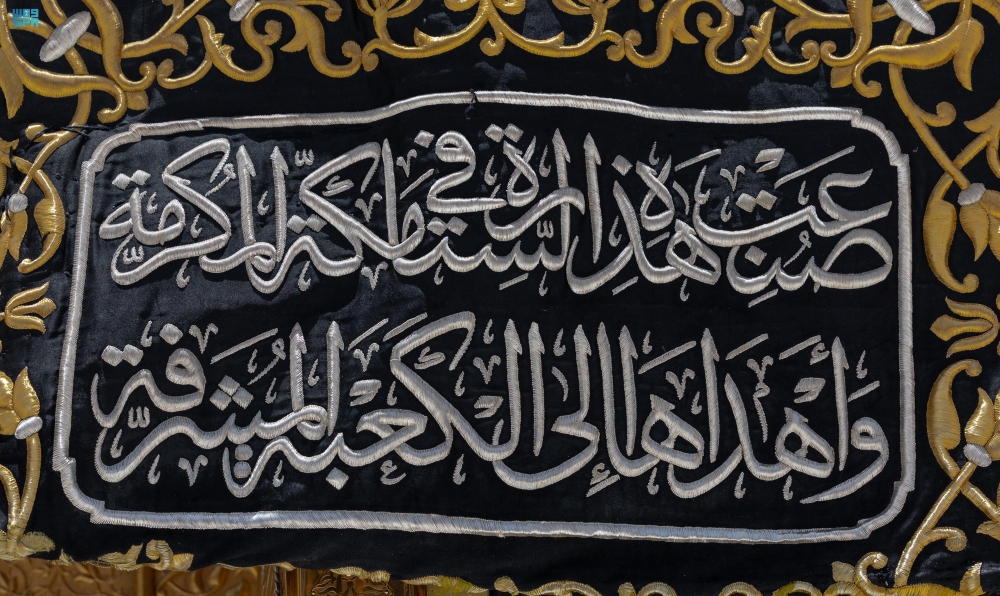 واس
صنعت هذه الستارة في مكة المكرمة
وأهداها إلى الكعبة المشرفة